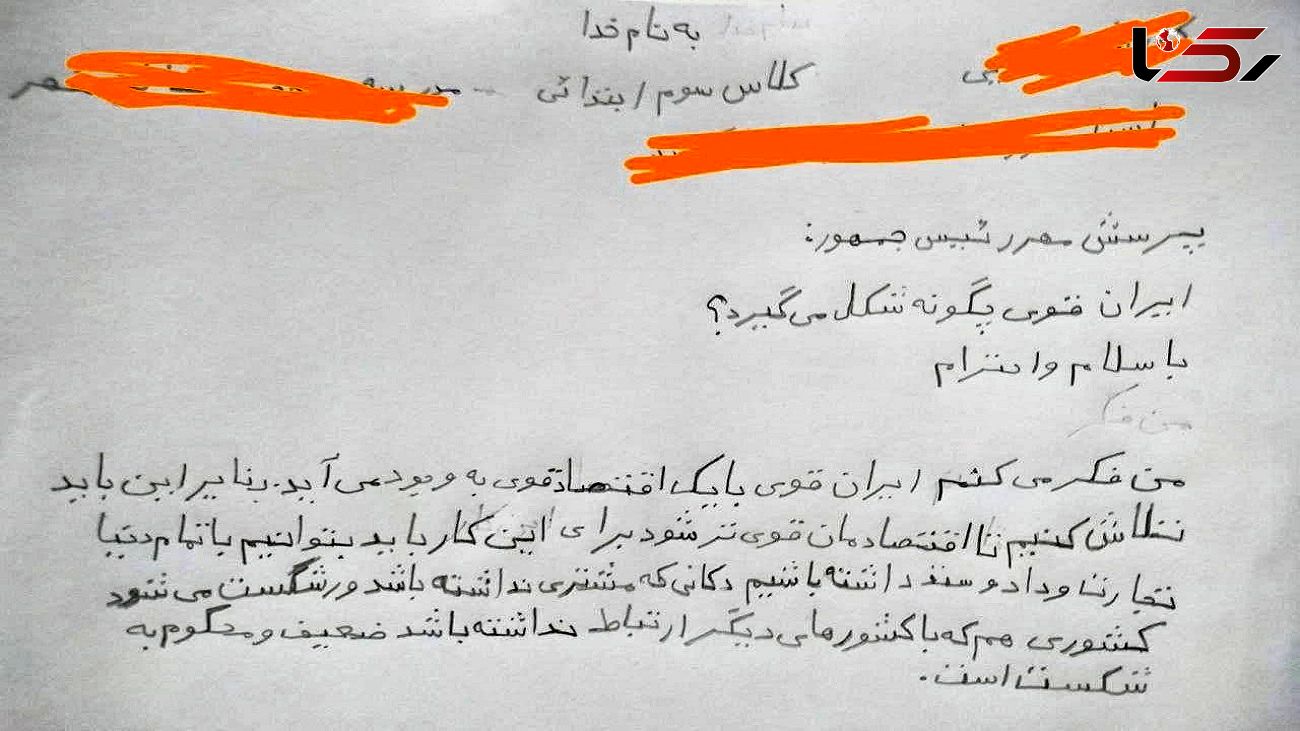 به نام خدا
رکنا
کلاس سوم ابتدائی - مدرسه
پرسش مهر رئیس جمهور:
ایران قوی چگونه شکل می گیرد؟
با سلام و احترام
من فکر
من فکر می کنم ایران قوی با یک اقتصاد قوی به وجود می آید. بنابراین باید
تلاش کنیم تا اقتصادمان قوی تر شود برای این کار باید بتوانیم با تمام دنیا
تجارت و داد و ستد داشته باشیم دکانی که مشتری نداشته باشد ورشکست می شود
کشوری هم که با کشورهای دیگر ارتباط نداشته باشد ضعیف و محکوم به
شکست است.